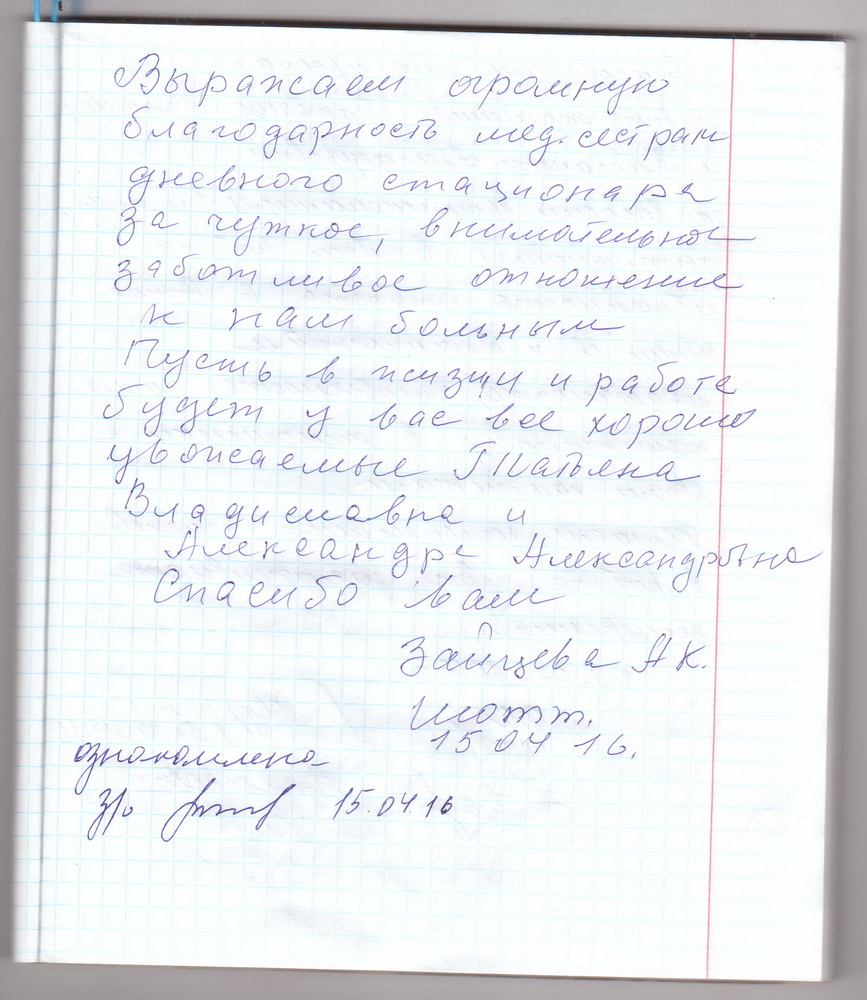 Выражаем огромную
благодарность мед. сестрам
дневного стационара
за чуткое, внимательное
заботливое отношение
к нам больным
Пусть в жизни и работе
будет у вас все хорошо
уважаемые Татьяна
Владиславна и
Александра Александровна
Спасибо вам
Зайцева А К.
15 04 16.
ознакомлена
15.04.16